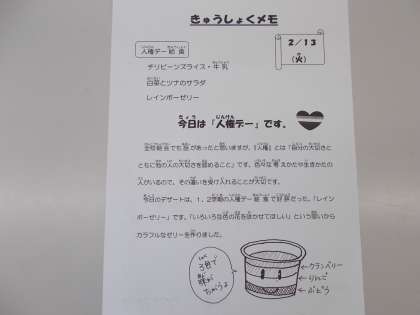 きゅうしょくメモ
2/13
(火)
人権デー給食
チリビーンズライス・牛乳
白菜とツナのサラダ
レインボーゼリー
今日は「人権デー」です。
全校朝会でも話があったと思いますが、「人権」とは「自分の大切さと
ともに他の人の大切さを認めること」です。色々な考えかたや生きかたの
人がいるので、その違いを受け入れることが大切です。
今日のデザートは、1、2学期の人権デー給食で好評だった。「レイン
ボーゼリー」です。「いろいろな色の花を咲かせてほしい」という願いから
カラフルなゼリーを作りました。
3色で
味が
ちがうよ
クランベリー
りんご
ぶどう